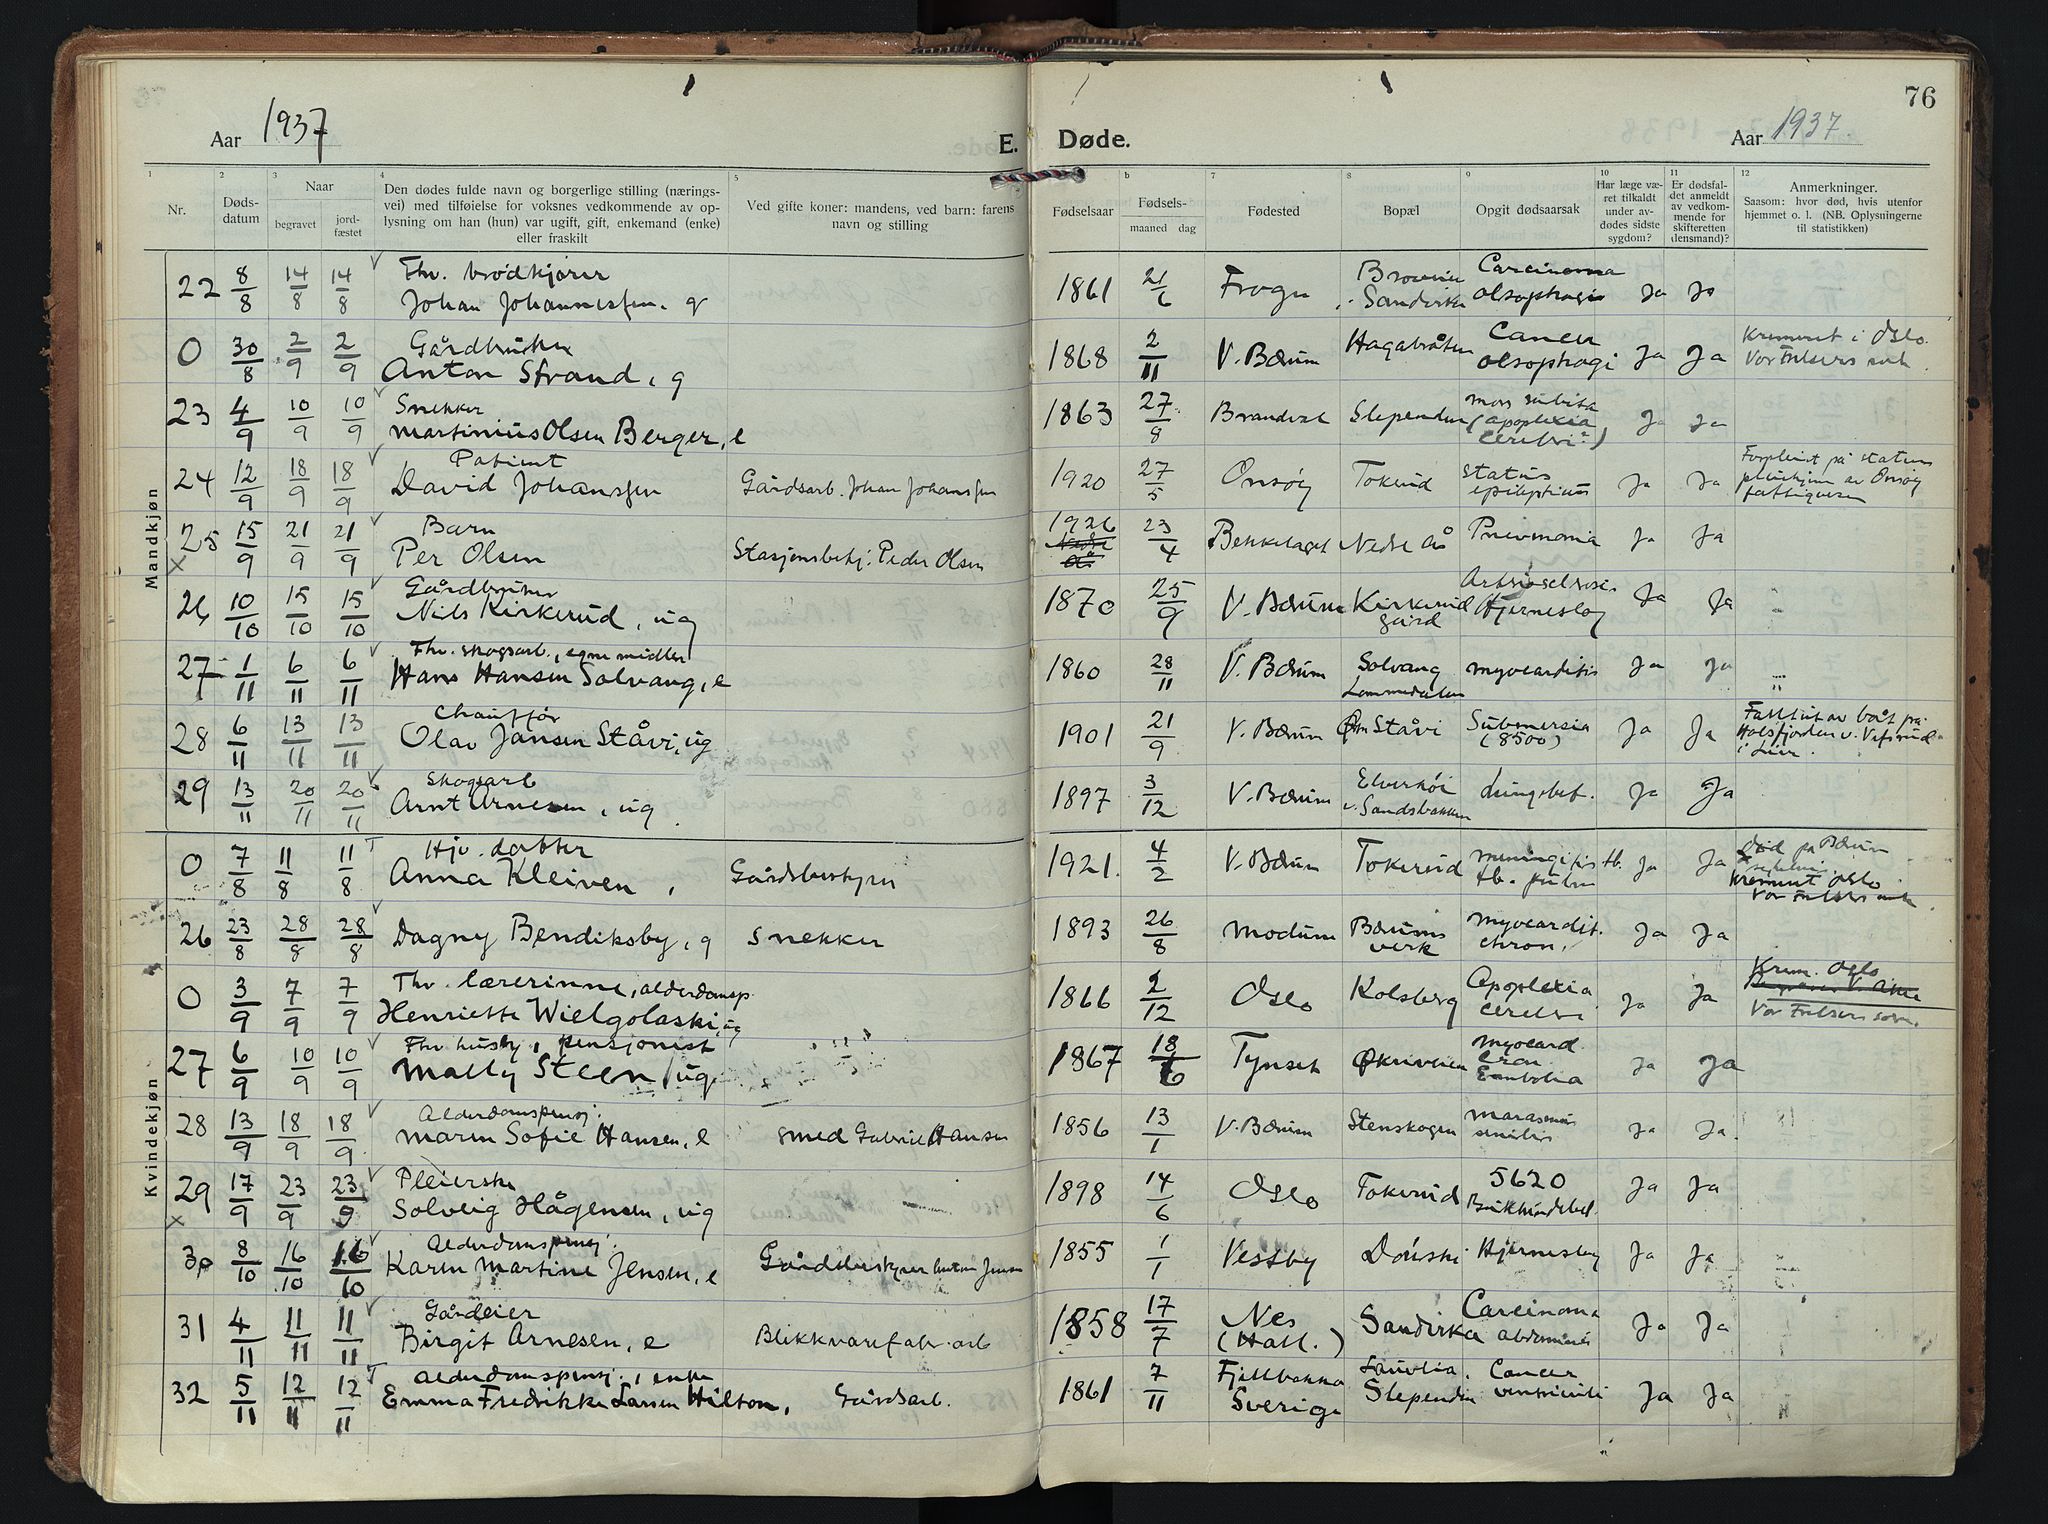 76
Aar 1937
E. Døde.
Aar 1937
1 2 3 4 5 b 7 8 9 10 11 12
Nr.
Døds-
datum
Naar
begravet
jord-
fæstet
Den dødes fulde navn og borgerlige stilling (nærings-
vei) med tilføielse for voksnes vedkommende av op-
lysning om han (hun) var ugift, gift, enkemand (enke)
eller fraskilt
Ved gifte koner: mandens, ved barn: farens
navn og stilling
Fødselsaar
Fødsels-
maaned dag
Fødested
Bopæl
Opgit dødsaarsak
Har læge væ-
ret tilkaldt
under av-
dødes sidste
sygdom?
Er dødsfal-
det anmeldt
av vedkom-
mende for
skifteretten
(lensmand)?
Anmerkninger.
Saasom: hvor død, hvis utenfor
hjemmet o. l. (NB. Oplysningerne
til statistikken)
Mandkjøn
22 8/8 14/8 14/8 Fhv. brødkjører
Johan Johannessen, g 1861 21/6 Frogn Sandvika Carcinoma Ja Ja
0 30/8 2/9 2/9 Gårdbruker
Anton Strand, g 1868 2/11 V. Bærum Hagabråten Cancer Ja Ja Kremeret i Oslo.
Vor Frelsers
23 4/9 10/9 10/9 Snekker
Martinius Olsen Berger, e 1863 27/8 Brandval Slependen mors subita
(apoplexia
cerebri?) Ja Ja
24 12/9 18/9 18/9 Patient
David Johanssen Gårdsarb. Johan Johanssen 1920 27/5 Onsøy Tokerud status
epilepticus Ja Ja Forpleiet på statens
pleiehjem av Onsøy
fattigvesen
25 15/9 21/9 21/9 Barn
x Per Olsen Stasjonsbetj. Peder Olsen 1926 23/4 Bekkelaget Nedre Ås Pneumonia Ja Ja
26 10/10 15/10 15/10 Gårdbruker
Nils Kirkerud, ug 1870 25/9 V. Bærum Kirkerud
gård Hjerneslag Ja Ja
27 1/11 6/11 6/11 Fhv. skogsarb., egne midler
Hans Hansen Solvang, e 1860 28/11 V. Bærum Solvang
Lommedalen myocarditis Ja Ja "
28 6/11 13/11 13/11 Chauffør
Olav Jansen Ståvi, ug 1901 21/9 V. Bærum Ståvi Submersia
(8500) Ja Ja Falt ut av båt på
Holsfjorden v. Vefsrud
i Lier.
29 13/11 20/11 20/11 Skogsarb
Arnt Arnesen, ug 1897 3/12 V. Bærum Elverhøi
v. Sandsbakken Lungebet. Ja Ja
Kvindekjøn
0 7/8 11/8 11/8 Hjv. datter
Anna Kleiven, Gårdsbestyrer 1921 4/2 V. Bærum Tokerud meningitis tb.
tb. pulm Ja Ja død på Bærum
Kremert Oslo
Vor Frelsers
26 23/8 28/8 28/8 Dagny Bendiksby, g Snekker 1893 26/8 Modum Bærums
verk myocardit.
chron. Ja Ja
0 3/9 7/9 7/9 Fhv. lærerinne, alderdomsp.
Henriette Wielgolaski, ug 1866 2/12 Oslo Kolsberg Apoplexia
cerebri Ja Ja Krem. Oslo
Vor Frelsers
27 6/9 10/9 10/9 Fhv. husbj, pensjonist
Mally Steen, ug 1867 18/6 Tynset Økriveien myocard.
cron
Embolia Ja Ja
28 13/9 18/9 18/9 Alderdomspensj.
Maren Sofie Hansen, e smed Gabriel Hansen 1856 13/1 V. Bærum Stenskogen marasmus
senilis Ja Ja
29 17/9 23/9 23/9 Pleierske
x Solveig Hågensen, ug 1898 14/6 Oslo Tokerud 5620
Ja Ja
30 8/10 16/10 16/10 Alderdomspensj.
Karen Martine Jensen, e Gårdsbestyrer Jensen 1855 1/1 Vestby Dønski Hjerneslag Ja Ja
31 4/11 11/11 11/11 Gårdeier
Birgit Arnesen, e Blikkvarefabr. arb 1858 17/7 Nes
(Hall.) Sandvika Carcinoma
abdominis Ja Ja
32 5/11 12/11 12/11 Alderdomspensj., enke
Emma Fredrikke Larsen Hilton, Gårdsarb. 1861 7/11 Fjellbakka
Sverige Slependen Cancer
ventriculi Ja Ja